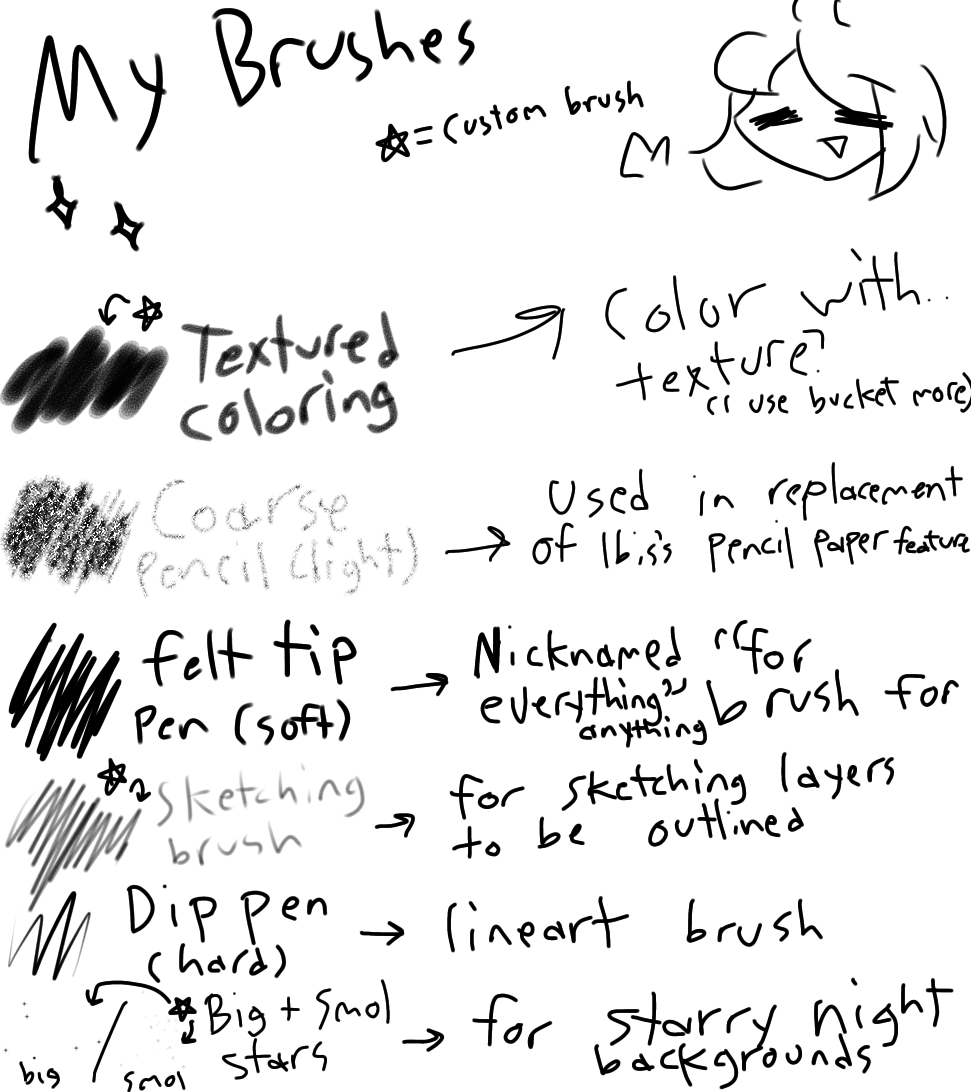 My Brushes
☆ = Custom brush
Textured
coloring
Color with..
texture?
(I use bucket more)
Coarse
pencil (light)
Used in replacement
of Ibis's pencil paper feature
felt tip
pen (soft)
Nicknamed "for
everything" brush for
anything
Sketching
brush
for sketching layers
to be outlined
Dip pen
(hard)
lineart brush
Big + Smol
stars
big
smol
for starry night
backgrounds